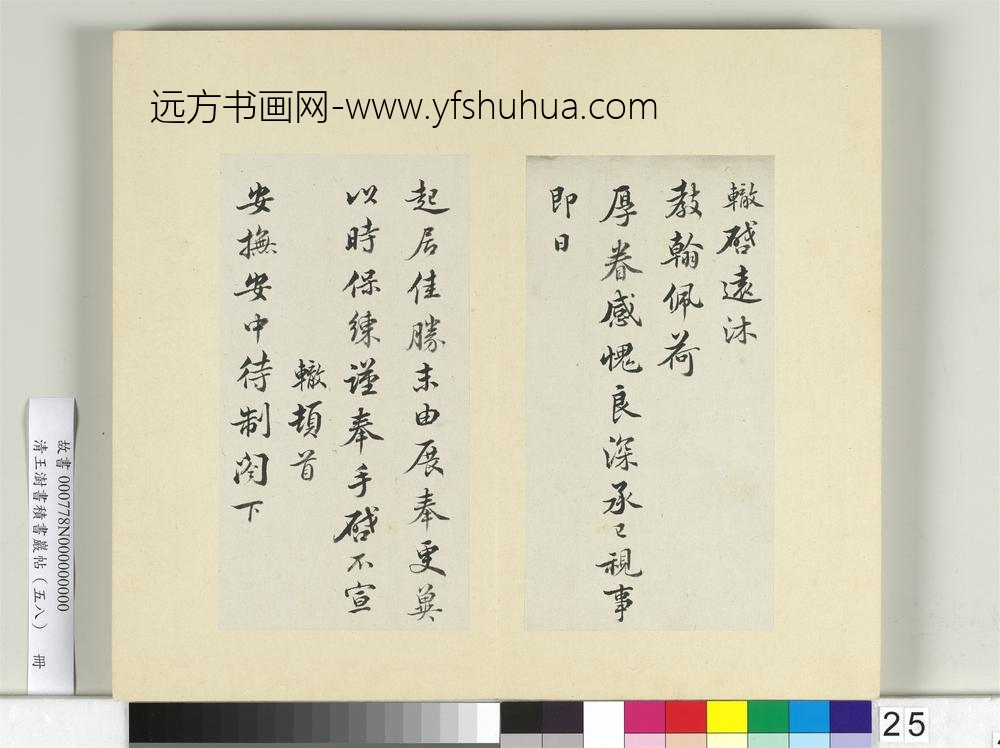 远方书画网-www.yfshuhua.com
轍啟遠沐
教翰佩荷
厚眷感愧良深承已視事
即日
起居佳勝未由展奉更冀
以時保練謹奉手啟不宣
轍頓首
安撫安中待制閤下
故書 000778N000000000
清王澍書積書巖帖（五八） 冊
25